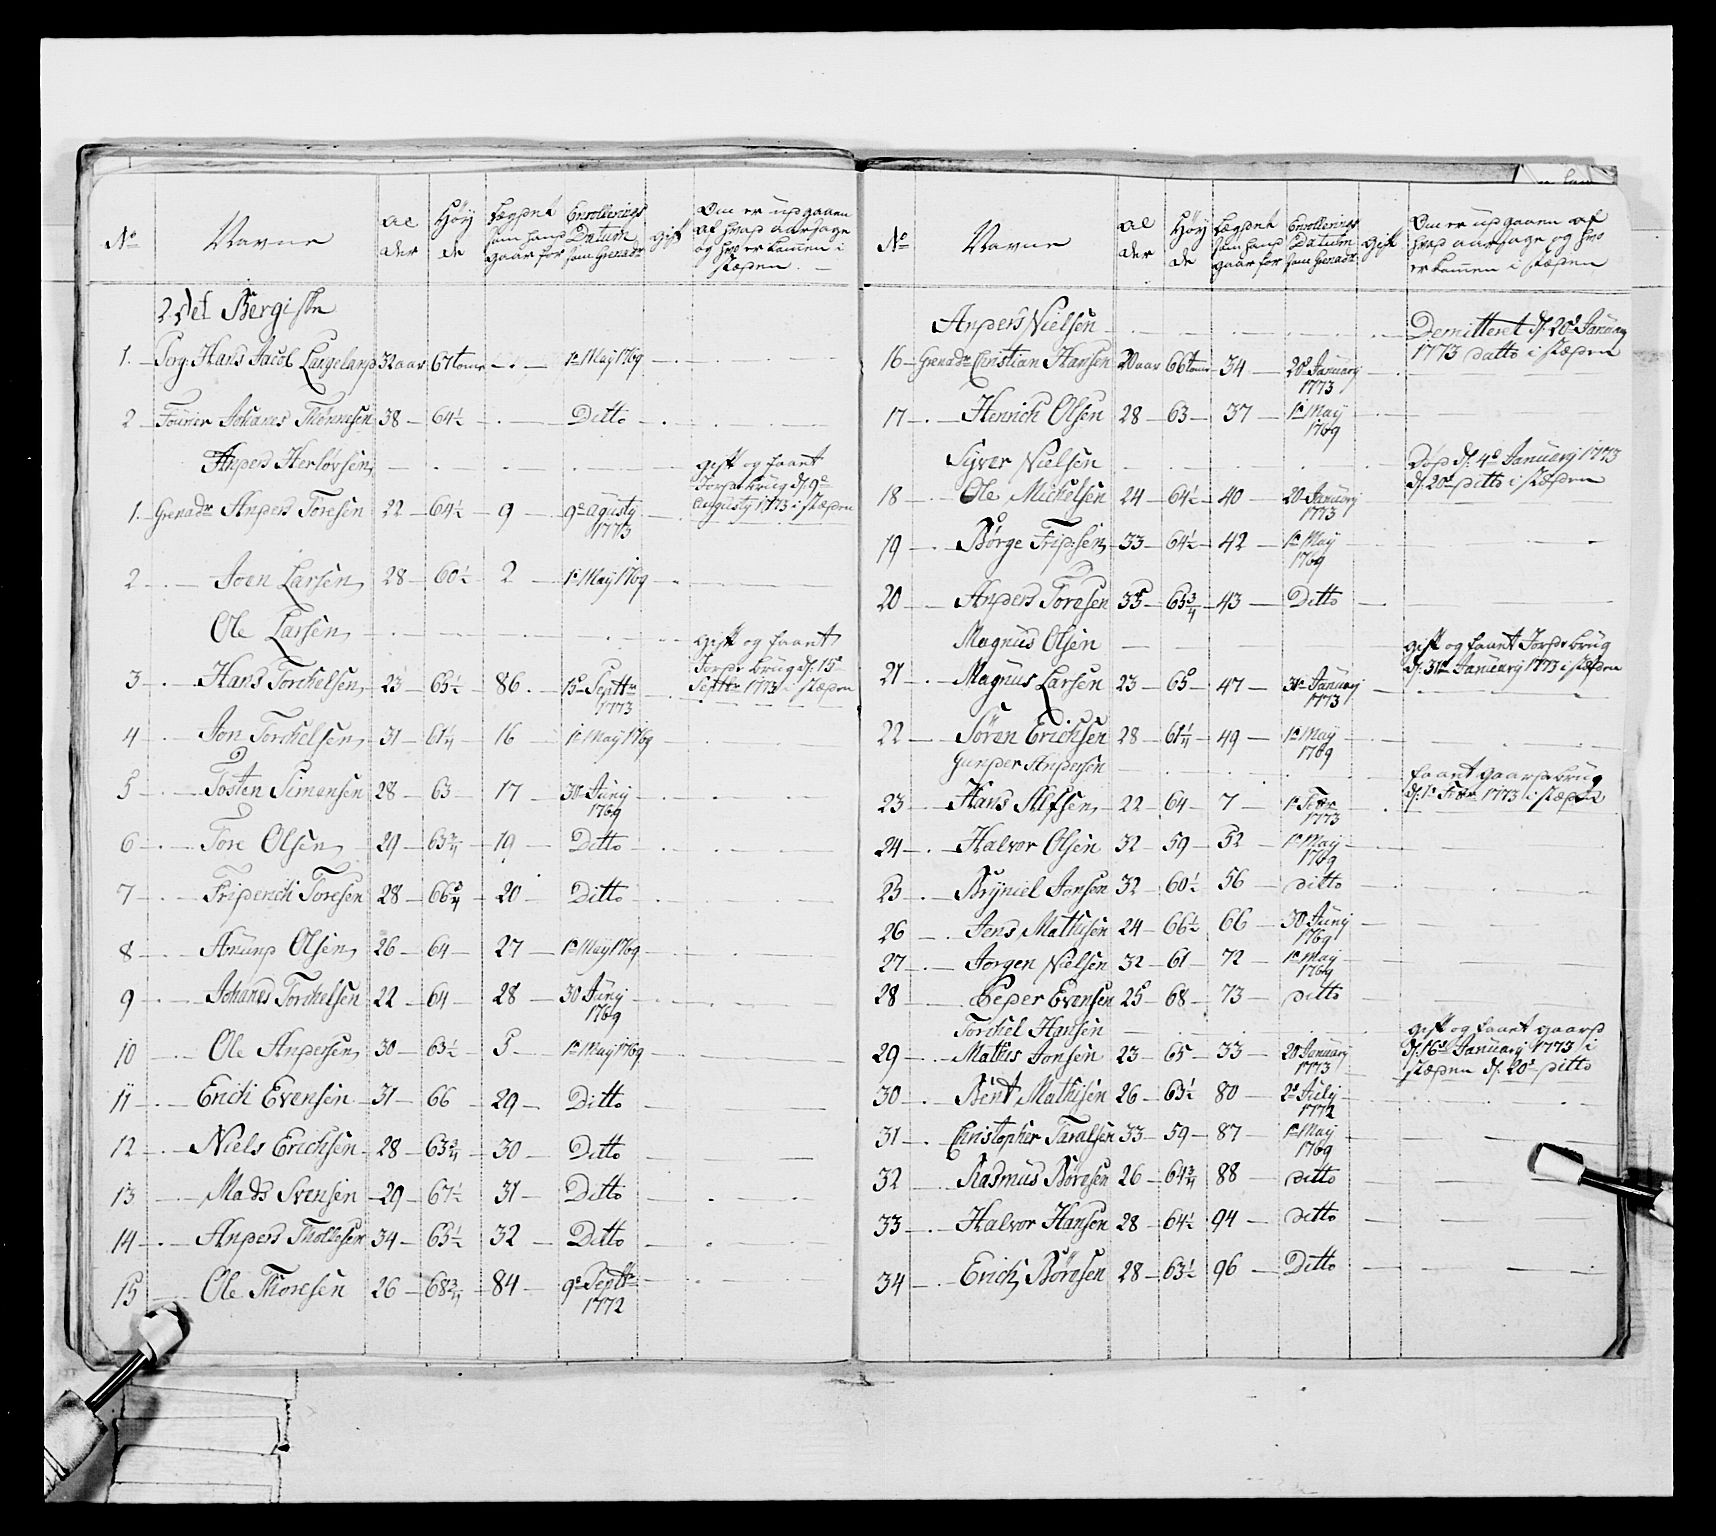 No Navne Alder Høyde Lægdet som hand gaar for Enrollerings Datum som Grenadr Gift Om er udgaaen af hvad aarsage og hvo er kommen i stæden
2det Bergiske
1. Serg. Hans Jacob Langeland 32 aar 67 tomr 1e May 1769
2 Fourier Johanes Thönnesen 38 64½ Ditto
Anders Herlovsen gift og faaet Jorde brug d. 9e Augusty 1773 i stæden
1. Grenadr Anders Toresen 22 64½ 9 9e Agusty 1773
2 Joen Larsen 28 60½ 2 1e May 1769
Ole Larsen gift og faaet Jorde brug d. 15e Septtr 1773 i stæden
3 Hans Torchelsen 23 63½ 86 15e Septtr 1773
4 Jon Torchelsen 31 61¼ 16 1e May 1769
5 Tosten Simensen 28 63 17 30 Juny 1769
6 Tore Olsen 29 63¾ 19 Ditto
7 Friderich Toresen 28 66¾ 20 Ditto
8 Amund Olsen 26 64 27 1e May 1769
9 Johanes Torchelsen 22 64 28 30 Juny 1769
10 Ole Andersen 30 63½ 5 1e May 1769
11 Erich Evensen 31 66 29 Ditto
12 Niels Erichsen 28 63¾ 30 Ditto
13 Mads Svensen 29 67½ 31 Ditto
14 Anders Thollesen 34 63½ 32 Ditto
15 Ole Thoresen 26 68¾ 84 9e Septtr 1772
No Navne Alder Høyde Lægdet som hand gaar for Enrollerings Datum som Grenadr Gift Om er udgaaen af hvad aarsage og hvo er kommen i stæden
Anders Nielsen Demitteret d. 20e January 1773 datto i stæden
16 Grenadr Christian Hansen 20 aar 66 tomr 34 20e January 1773
17 Henrich Olsen 28 63 37 1e May 1769
Syver Nielsen Död d. 4e January 1773 d. 20e ditto i stæden
18 Ole Michelsen 24 64½ 40 20 January 1773
19 Börge Fridsen 33 64½ 42 1e May 1769
20 Anders Toresen 35 63¾ 43 Ditto
Magnus Olsen gift og faaet Jorde brug d. 31e January 1773 i stæden
21 Magnus Larsen 23 65 47 31e January 1773
22 Sören Erichsen 28 61¼ 49 1e May 1769
Gunder Andersen faaet gaarde brug d. 1e Febr 1773 i stæden
23 Hans Alfsen 22 64 7 1e Febr 1773
24 Halvor Olsen 32 59 52 1e May 1769
25 Bryniel Jonsen 32 60½ 56 ditto
26 Jens Mathisen 24 66½ 66 30 Juny 1769
27 Jörgen Nielsen 32 61 72 1e May 1769
28 Peder Evensen 25 68 73 ditto
Torchel Hansen gift og faaet gaard d. 16e January 1773 i stæden d. 20e ditto
29 Mathis Jonsen 23 65 33 20 January 1773
30 Bent Mathisen 26 63½ 80 2e July 1772
31 Christopher Taralsen 33 59 87 1e May 1769
32 Rasmus Böresen 26 64¾ 88 ditto
33 Halvor Hansen 28 64½ 94 ditto
34 Erich Böresen 28 63½ 96 Ditto